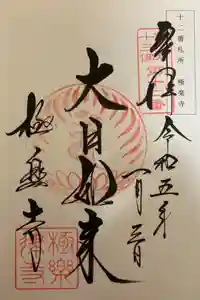 十二番札所　極楽寺
奉拝
令和五年
一月三日
大日如来
極楽寺
極樂